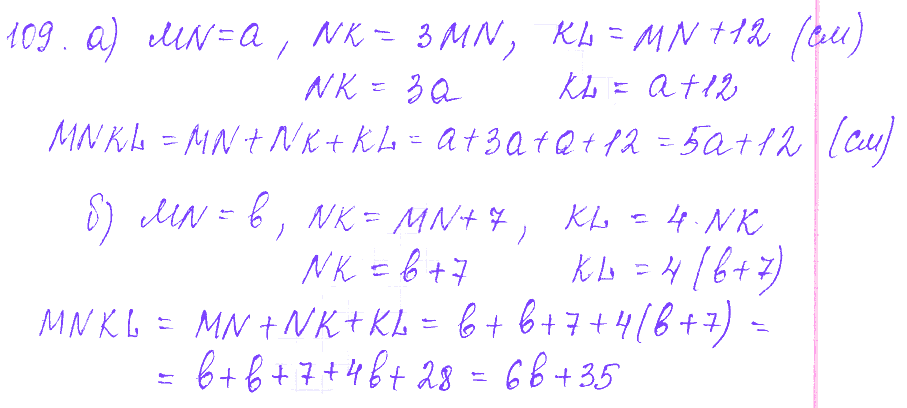 109. а) MN = a, NK = 3MN, KL = MN + 12 (см)
NK = 3a KL = a + 12
MNKL = MN + NK + KL = a + 3a + a + 12 = 5a + 12 (см)
б) MN = b, NK = MN + 7, KL = 4 · NK
NK = b + 7 KL = 4 (b + 7)
MNKL = MN + NK + KL = b + b + 7 + 4 (b + 7) =
= b + b + 7 + 4b + 28 = 6b + 35